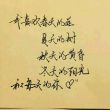 我喜欢春天的花
夏天的树
秋天的黄昏
冬天的阳光
和每天的你